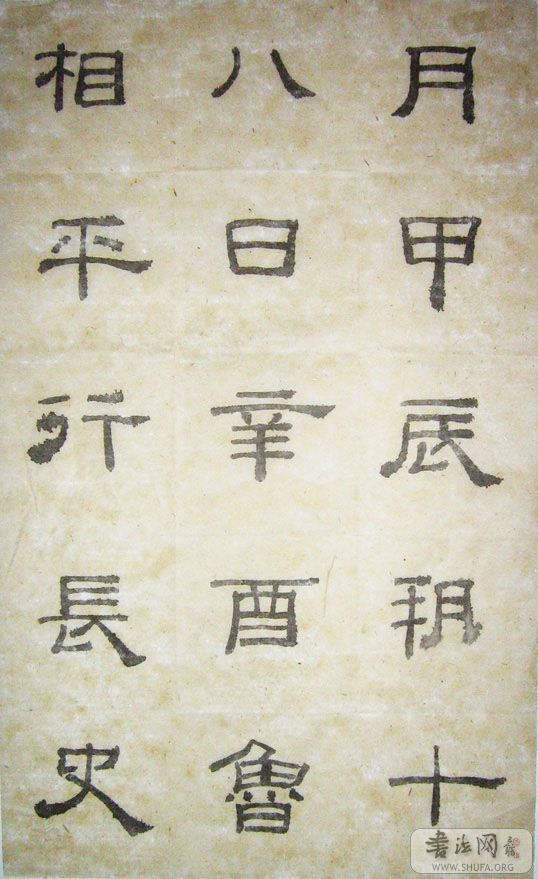 月甲辰朔十
八日辛酉魯
相平行長史
書法网
WWW.SHUFA.ORG